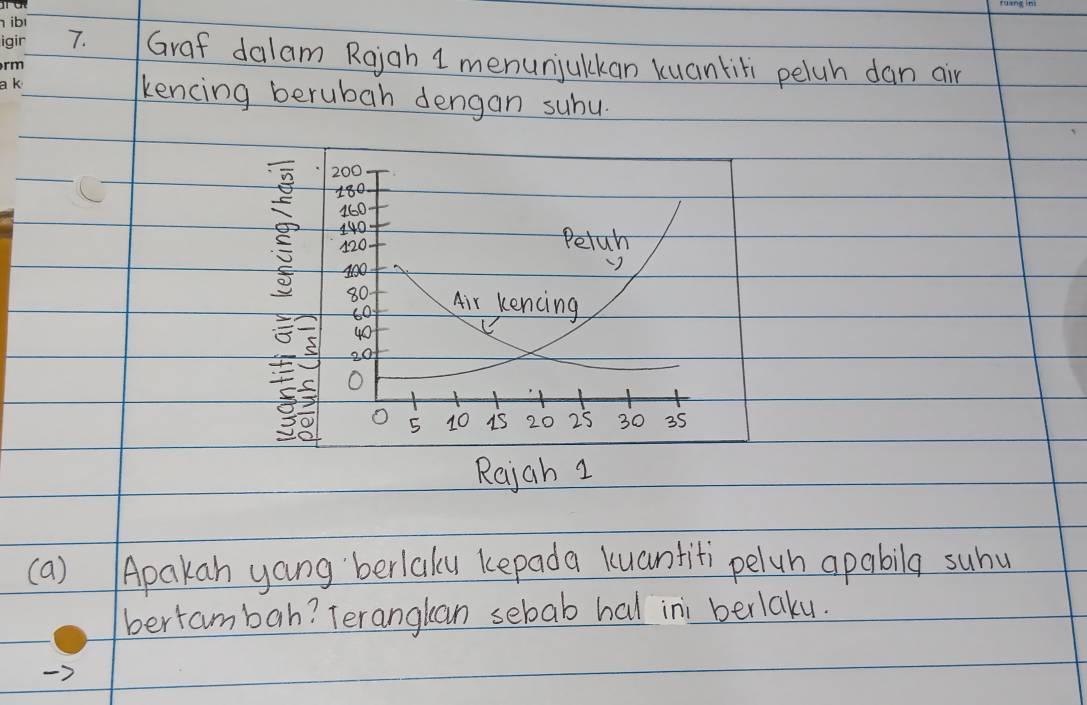 ruang ini
igir
rm
a k
7. Graf dalam Rajah 1 menunjukkan kuantiti peluh dan air
kencing berubah dengan suhu.
Kuantiti air kencing/hasil
peluh (ml)
200
180
160
140
120
100
80
60
40
20
0
Peluh
Air kencing
0 5 10 15 20 25 30 35
Rajah 1
(a) Apakah yang berlaku kepada kuantiti peluh apabila suhu
bertambah? Terangkan sebab hal ini berlaku.
->